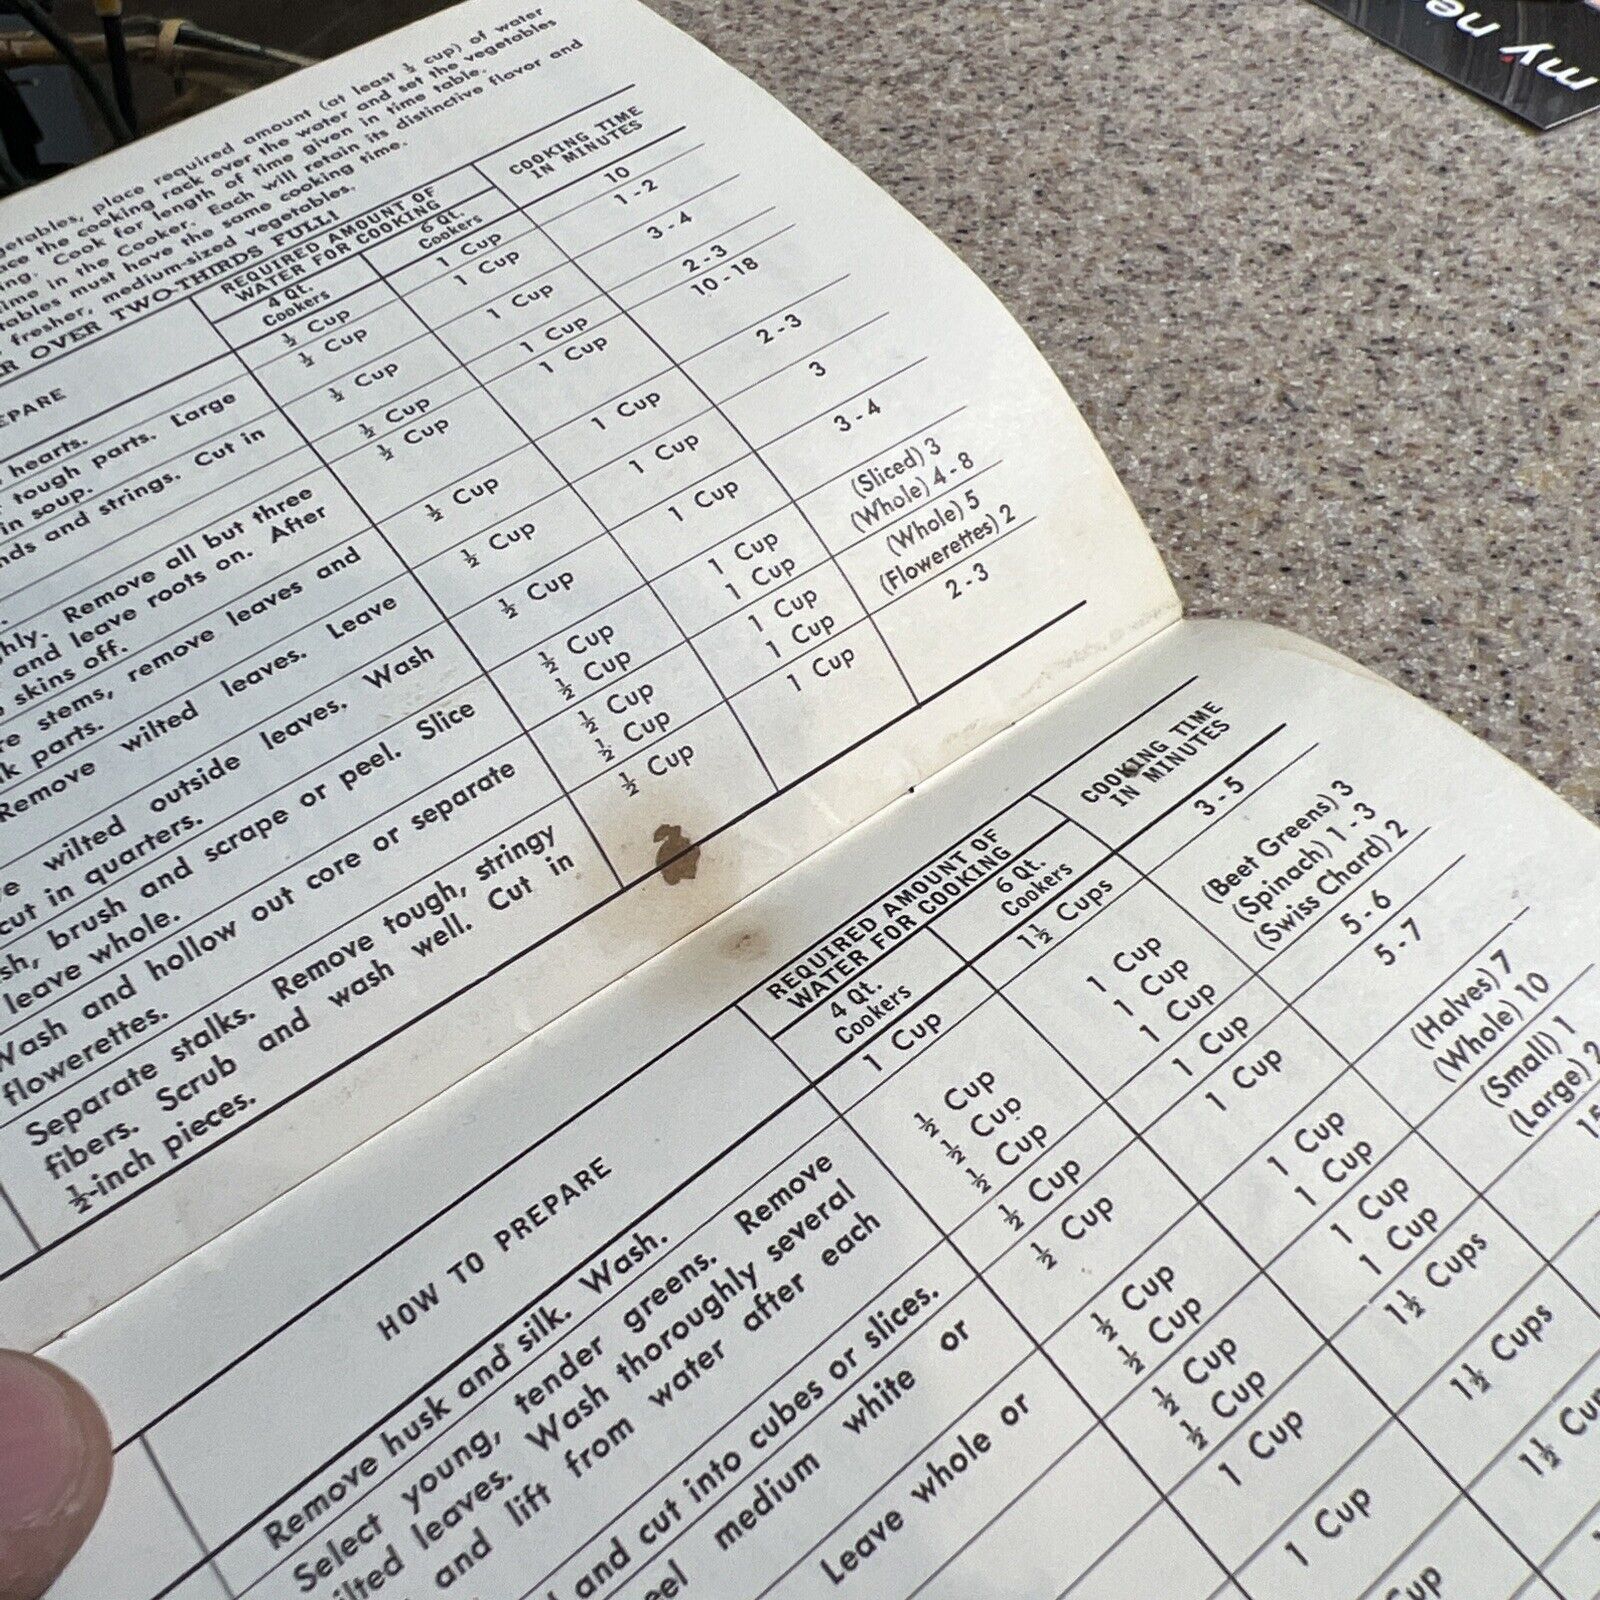 getables, place required amount (at least ½ cup) of water
ace the cooking rack over the water and set the vegetables
ing. Cook for length of time given in time table.
time in the Cooker. Each will retain its distinctive flavor and
tables must have the same cooking time.
fresher, medium-sized vegetables.
R OVER TWO-THIRDS FULL!
REQUIRED AMOUNT OF
WATER FOR COOKING
COOKING TIME
IN MINUTES
4 Qt.
Cookers
6 Qt.
Cookers
EPARE
hearts.
tough parts. Large
in soup.
nds and strings. Cut in
hly. Remove all but three
and leave roots on. After
skins off.
re stems, remove leaves and
k parts.
Remove wilted leaves. Leave
e wilted outside leaves. Wash
cut in quarters.
sh, brush and scrape or peel. Slice
leave whole.
Wash and hollow out core or separate
flowerettes.
Separate stalks. Remove tough, stringy
fibers. Scrub and wash well. Cut in
½-inch pieces.
½ Cup 1 Cup 10
½ Cup 1 Cup 1 - 2
½ Cup 1 Cup 3 - 4
½ Cup 1 Cup 2 - 3
½ Cup 1 Cup 10 - 18
½ Cup 1 Cup 2 - 3
½ Cup 1 Cup 3
½ Cup 1 Cup 3 - 4
½ Cup 1 Cup (Sliced) 3
½ Cup 1 Cup (Whole) 4 - 8
½ Cup 1 Cup (Whole) 5
½ Cup 1 Cup (Flowerettes) 2
½ Cup 1 Cup 2 - 3
HOW TO PREPARE
REQUIRED AMOUNT OF
WATER FOR COOKING
COOKING TIME
IN MINUTES
4 Qt.
Cookers
6 Qt.
Cookers
Remove husk and silk. Wash.
Select young, tender greens. Remove
ilted leaves. Wash thoroughly several
and lift from water after each
and cut into cubes or slices.
eel medium white or
Leave whole or
1 Cup 1½ Cups 3 - 5
½ Cup 1 Cup (Beet Greens) 3
½ Cup 1 Cup (Spinach) 1 - 3
½ Cup 1 Cup (Swiss Chard) 2
½ Cup 1 Cup 5 - 6
½ Cup 1 Cup 5 - 7
½ Cup 1 Cup (Halves) 7
½ Cup 1 Cup (Whole) 10
½ Cup 1 Cup (Small) 1
½ Cup 1 Cup (Large) 2
1 Cup 1½ Cups 15
1 Cup 1½ Cups
Cup 1½ Cup
my ne